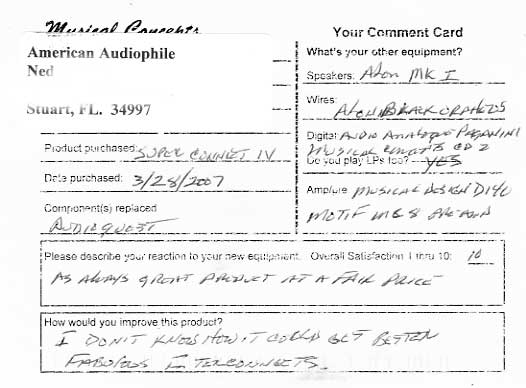 Musical Concepts
Your Comment Card
American Audiophile
Ned
Stuart, FL. 34997
Product purchased: SUPER CONNECT IV
Date purchased: 3/28/2007
Component(s) replaced
AUDIOQUEST
What's your other equipment?
Speakers: Alon MK I
Wires:
ALON BLACK ORPHEUS
Digital: AUDIO ANALOGUE PAGANINI
MUSICAL CONCEPTS CD 2
Do you play LPs too? YES
Amp/pre MUSICAL DESIGN D140
MOTIF MC8 PREAMP
Please describe your reaction to your new equipment. Overall Satisfaction 1 thru 10: 10
AS ALWAYS GREAT PRODUCT AT A FAIR PRICE
How would you improve this product?
I DON'T KNOW HOW IT COULD GET BETTER
FABULOUS INTERCONNECTS.